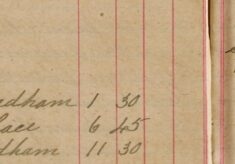 edham 1 30
lace 6 45
dham 11 30